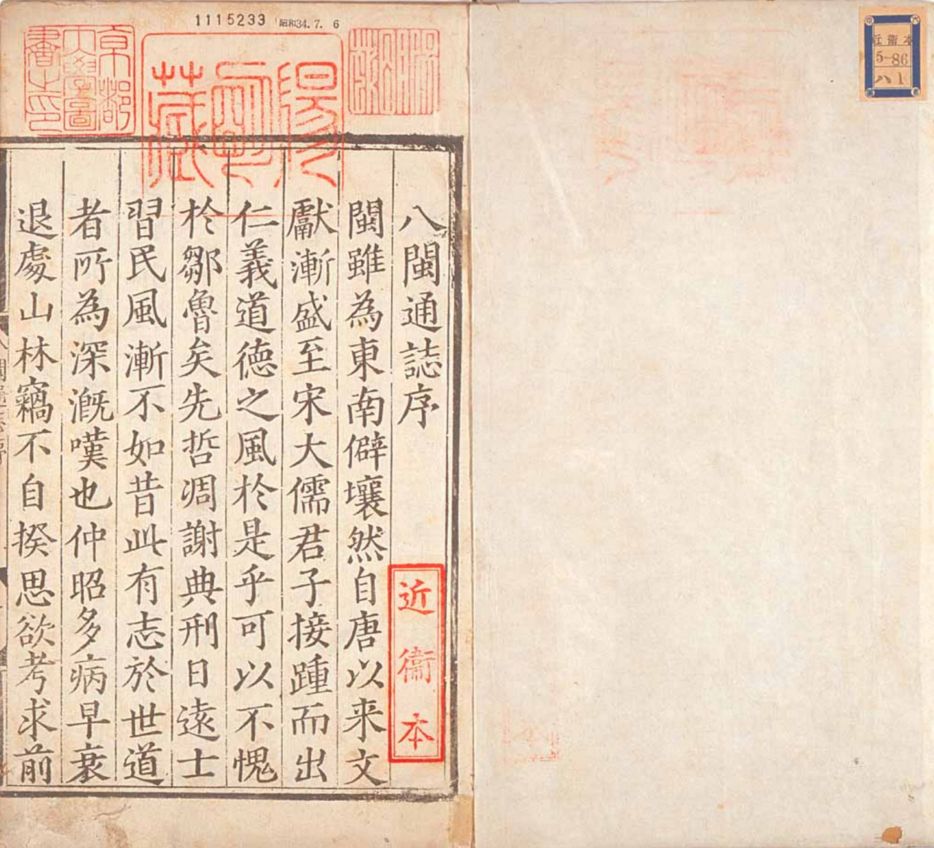 近衞本
5-86
ハ1
1115233 昭和34.7.6
京都
大學圖
書之印
陽明
藏
近衞本
八閩通誌序
閩雖為東南僻壤然自唐以来文
獻漸盛至宋大儒君子接踵而出
仁義道德之風於是乎可以不愧
於鄒魯矣先哲凋謝典刑日遠士
習民風漸不如昔此有志於世道
者所為深漑嘆也仲昭多病早衰
退處山林竊不自揆思欲考求前